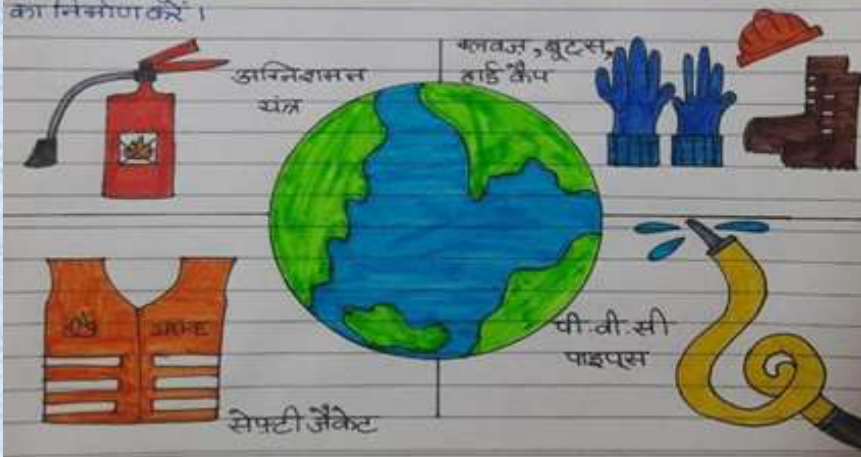 का निर्माण करें।
अग्निशमन
यंत्र
ग्लवज़, बूट्स,
हार्ड कैप
पी.वी.सी
पाइप्स
सेफ्टी जैकेट